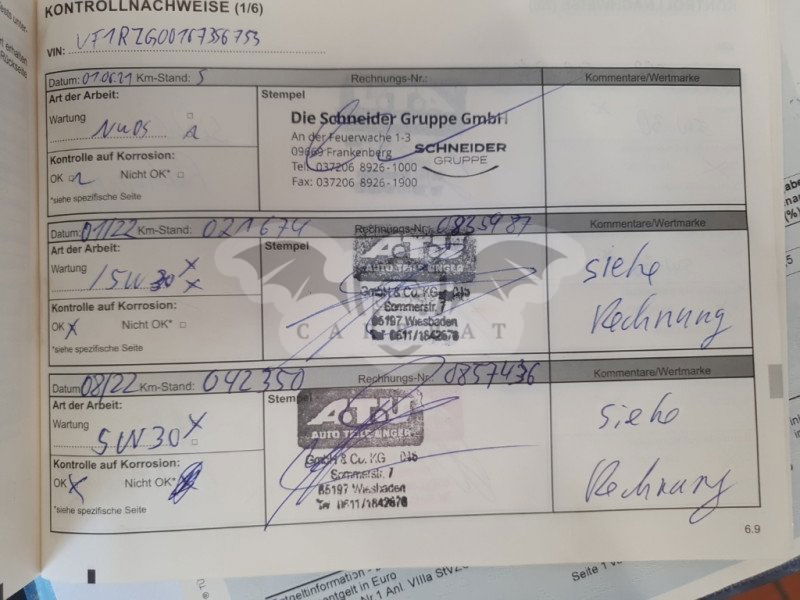 KONTROLLNACHWEISE (1/6)
VIN:
Datum: 01.06.21 Km-Stand: 5 Rechnungs-Nr.: Kommentare/Wertmarke
Art der Arbeit: Stempel
Wartung
Die Schneider Gruppe GmbH
An der Feuerwache 1-3
09669 Frankenberg
SCHNEIDER
GRUPPE
Tel: 037206 8926-1000
Fax: 037206 8926-1900
Kontrolle auf Korrosion:
OK Nicht OK*
*siehe spezifische Seite
Datum: 01/22 Km-Stand: 021674 Rechnungs-Nr.: 0835987 Kommentare/Wertmarke
Art der Arbeit: Stempel
Wartung 5W30 X X
ATU
AUTO TEILE UNGER
GmbH & Co. KG
Sommerstr. 7
65197 Wiesbaden
Tel 0611/1842678
siehe
Rechnung
Kontrolle auf Korrosion:
OK X Nicht OK*
*siehe spezifische Seite
CARBAT
Datum: 08/22 Km-Stand: 042350 Rechnungs-Nr.: 0857436 Kommentare/Wertmarke
Art der Arbeit: Stempel
Wartung 5W30 X
ATU
AUTO TEILE UNGER
GmbH & Co. KG
Sommerstr. 7
65197 Wiesbaden
Tel 0611/1842678
siehe
Rechnung
Kontrolle auf Korrosion:
OK X Nicht OK*
*siehe spezifische Seite
6.9
entgelt in Euro
Nr 1 Anl. VIIIa StVZO
Seite 1